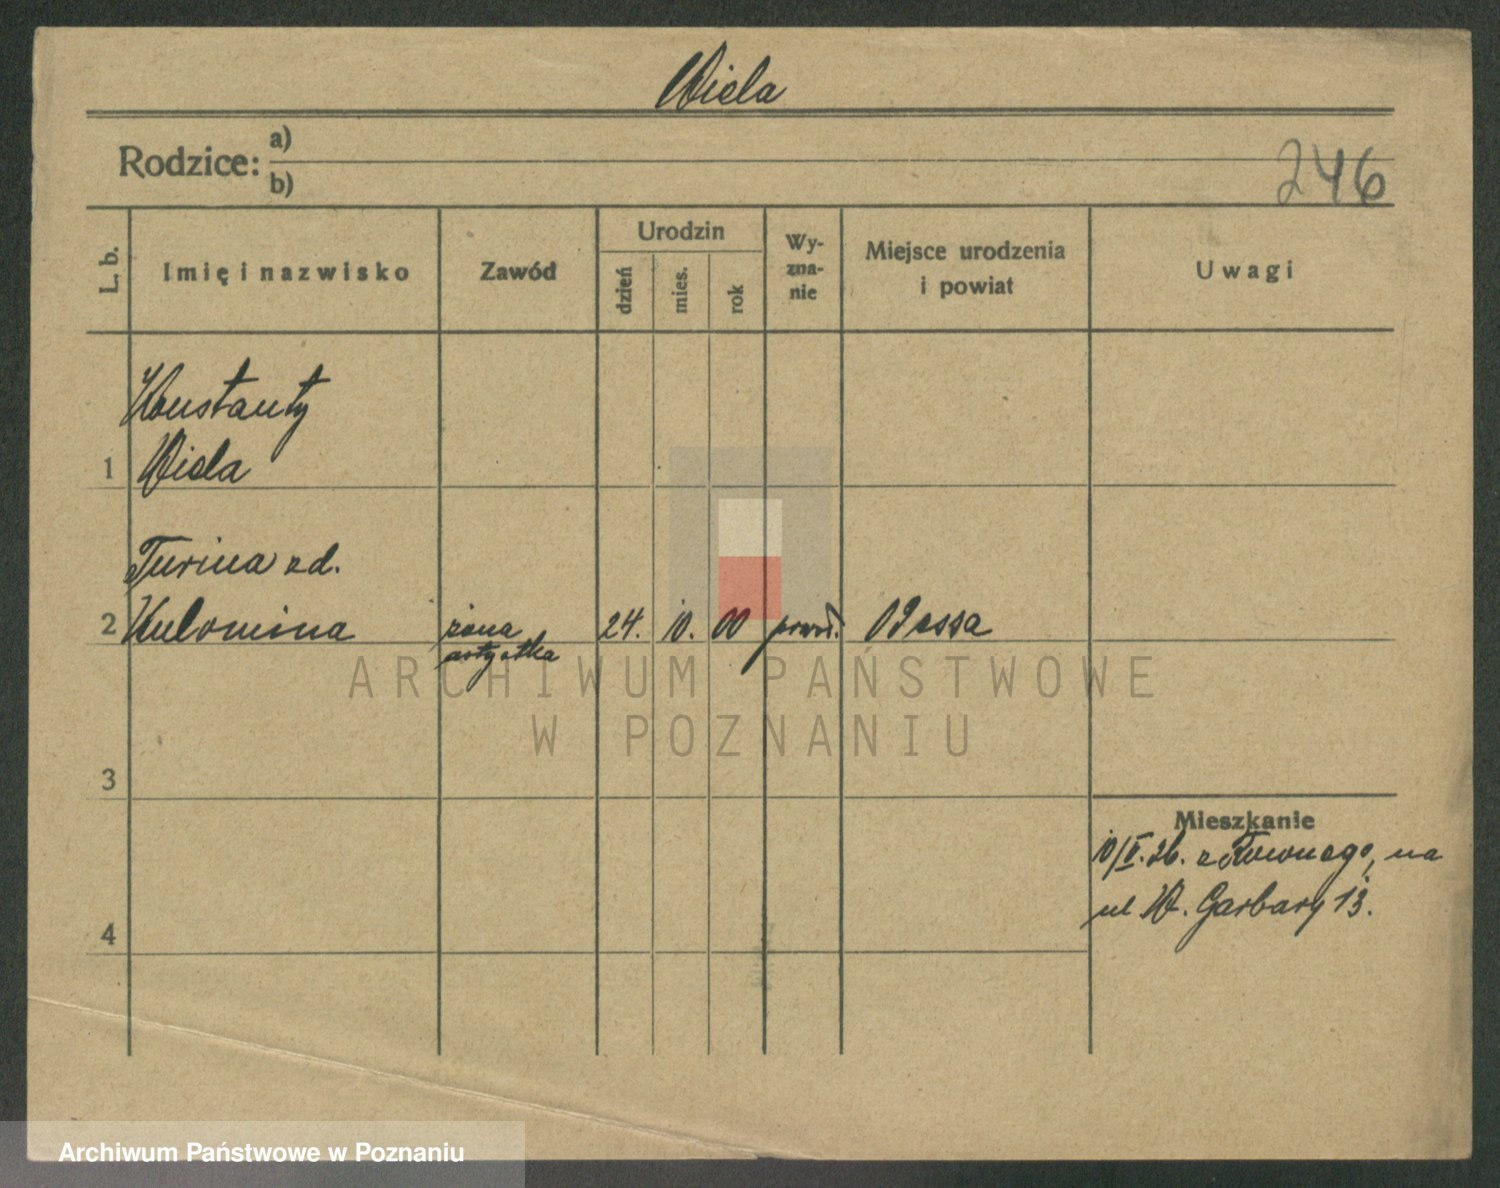 Wiela
Rodzice: a)
b)
246
L. b.
Imię i nazwisko
Zawód
Urodzin
dzień
mies.
rok
Wy-
zna-
nie
Miejsce urodzenia
i powiat
Uwagi
Konstanty
1 Wiela
Turina zd.
2 Kulomina żona 24. 10. 00 praw. Odessa
artystka
ARCHIWUM PAŃSTWOWE
W POZNANIU
3
Mieszkanie
10/II.26. z Równego, na
ul W. Garbary 13.
4
Archiwum Państwowe w Poznaniu